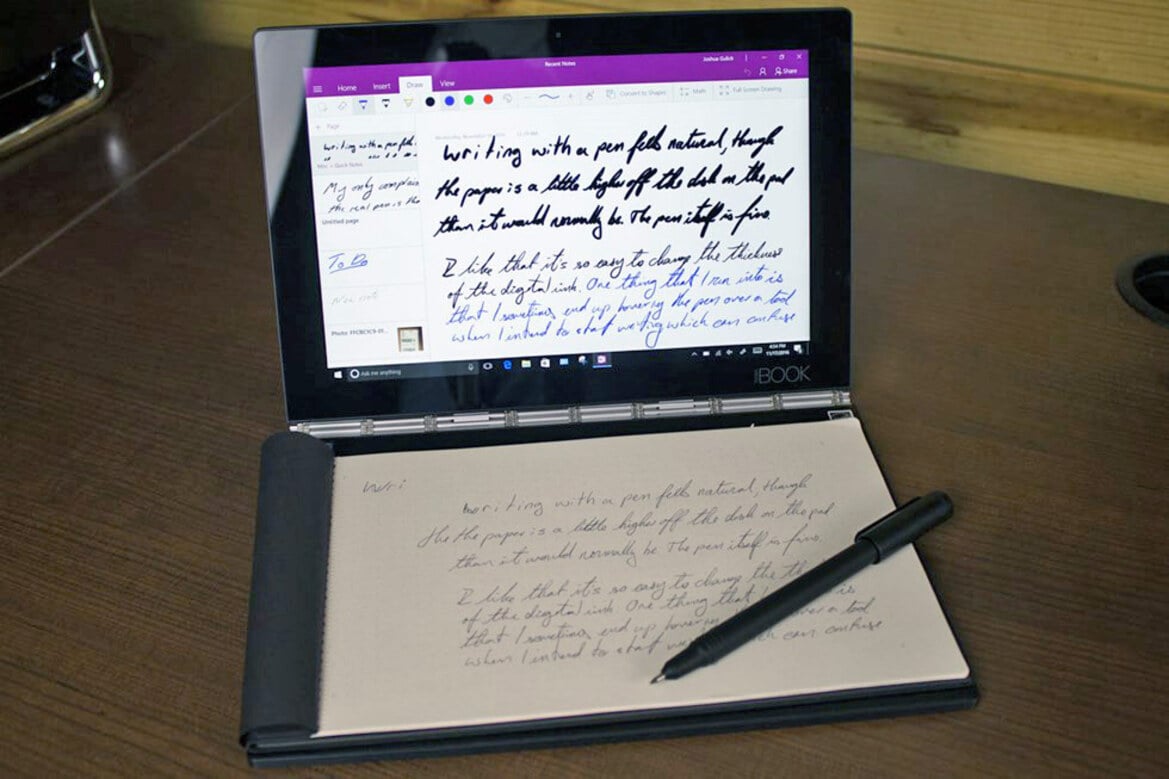 Recent Notes
Joshua Gulick
Home Insert Draw View
Share
Convert to Shapes
Math
Full Screen Drawing
+ Page
writing with a pen fells
Misc » Quick Notes
My only complain
the real pen is tha
Untitled page
To Do
Photo
writing with a pen fells natural, though
the paper is a little higher off the desk on the pad
than it would normally be. The pen itself is fine.
I like that it's so easy to change the thickness
of the digital ink. One thing that I run into is
that I sometimes end up hovering the pen over a tool
when I intend to start writing which can confuse
Ask me anything
4:04 PM
11/17/2016
YOGA BOOK
wri
writing with a pen fells natural, though
the the paper is a little higher off the desk on the pad
than it would normally be. The pen itself is fine.
I like that it's so easy to change the th
of the digital ink. One thing that I is
that I sometimes end up hovering over a tool
when I intend to start which can confuse